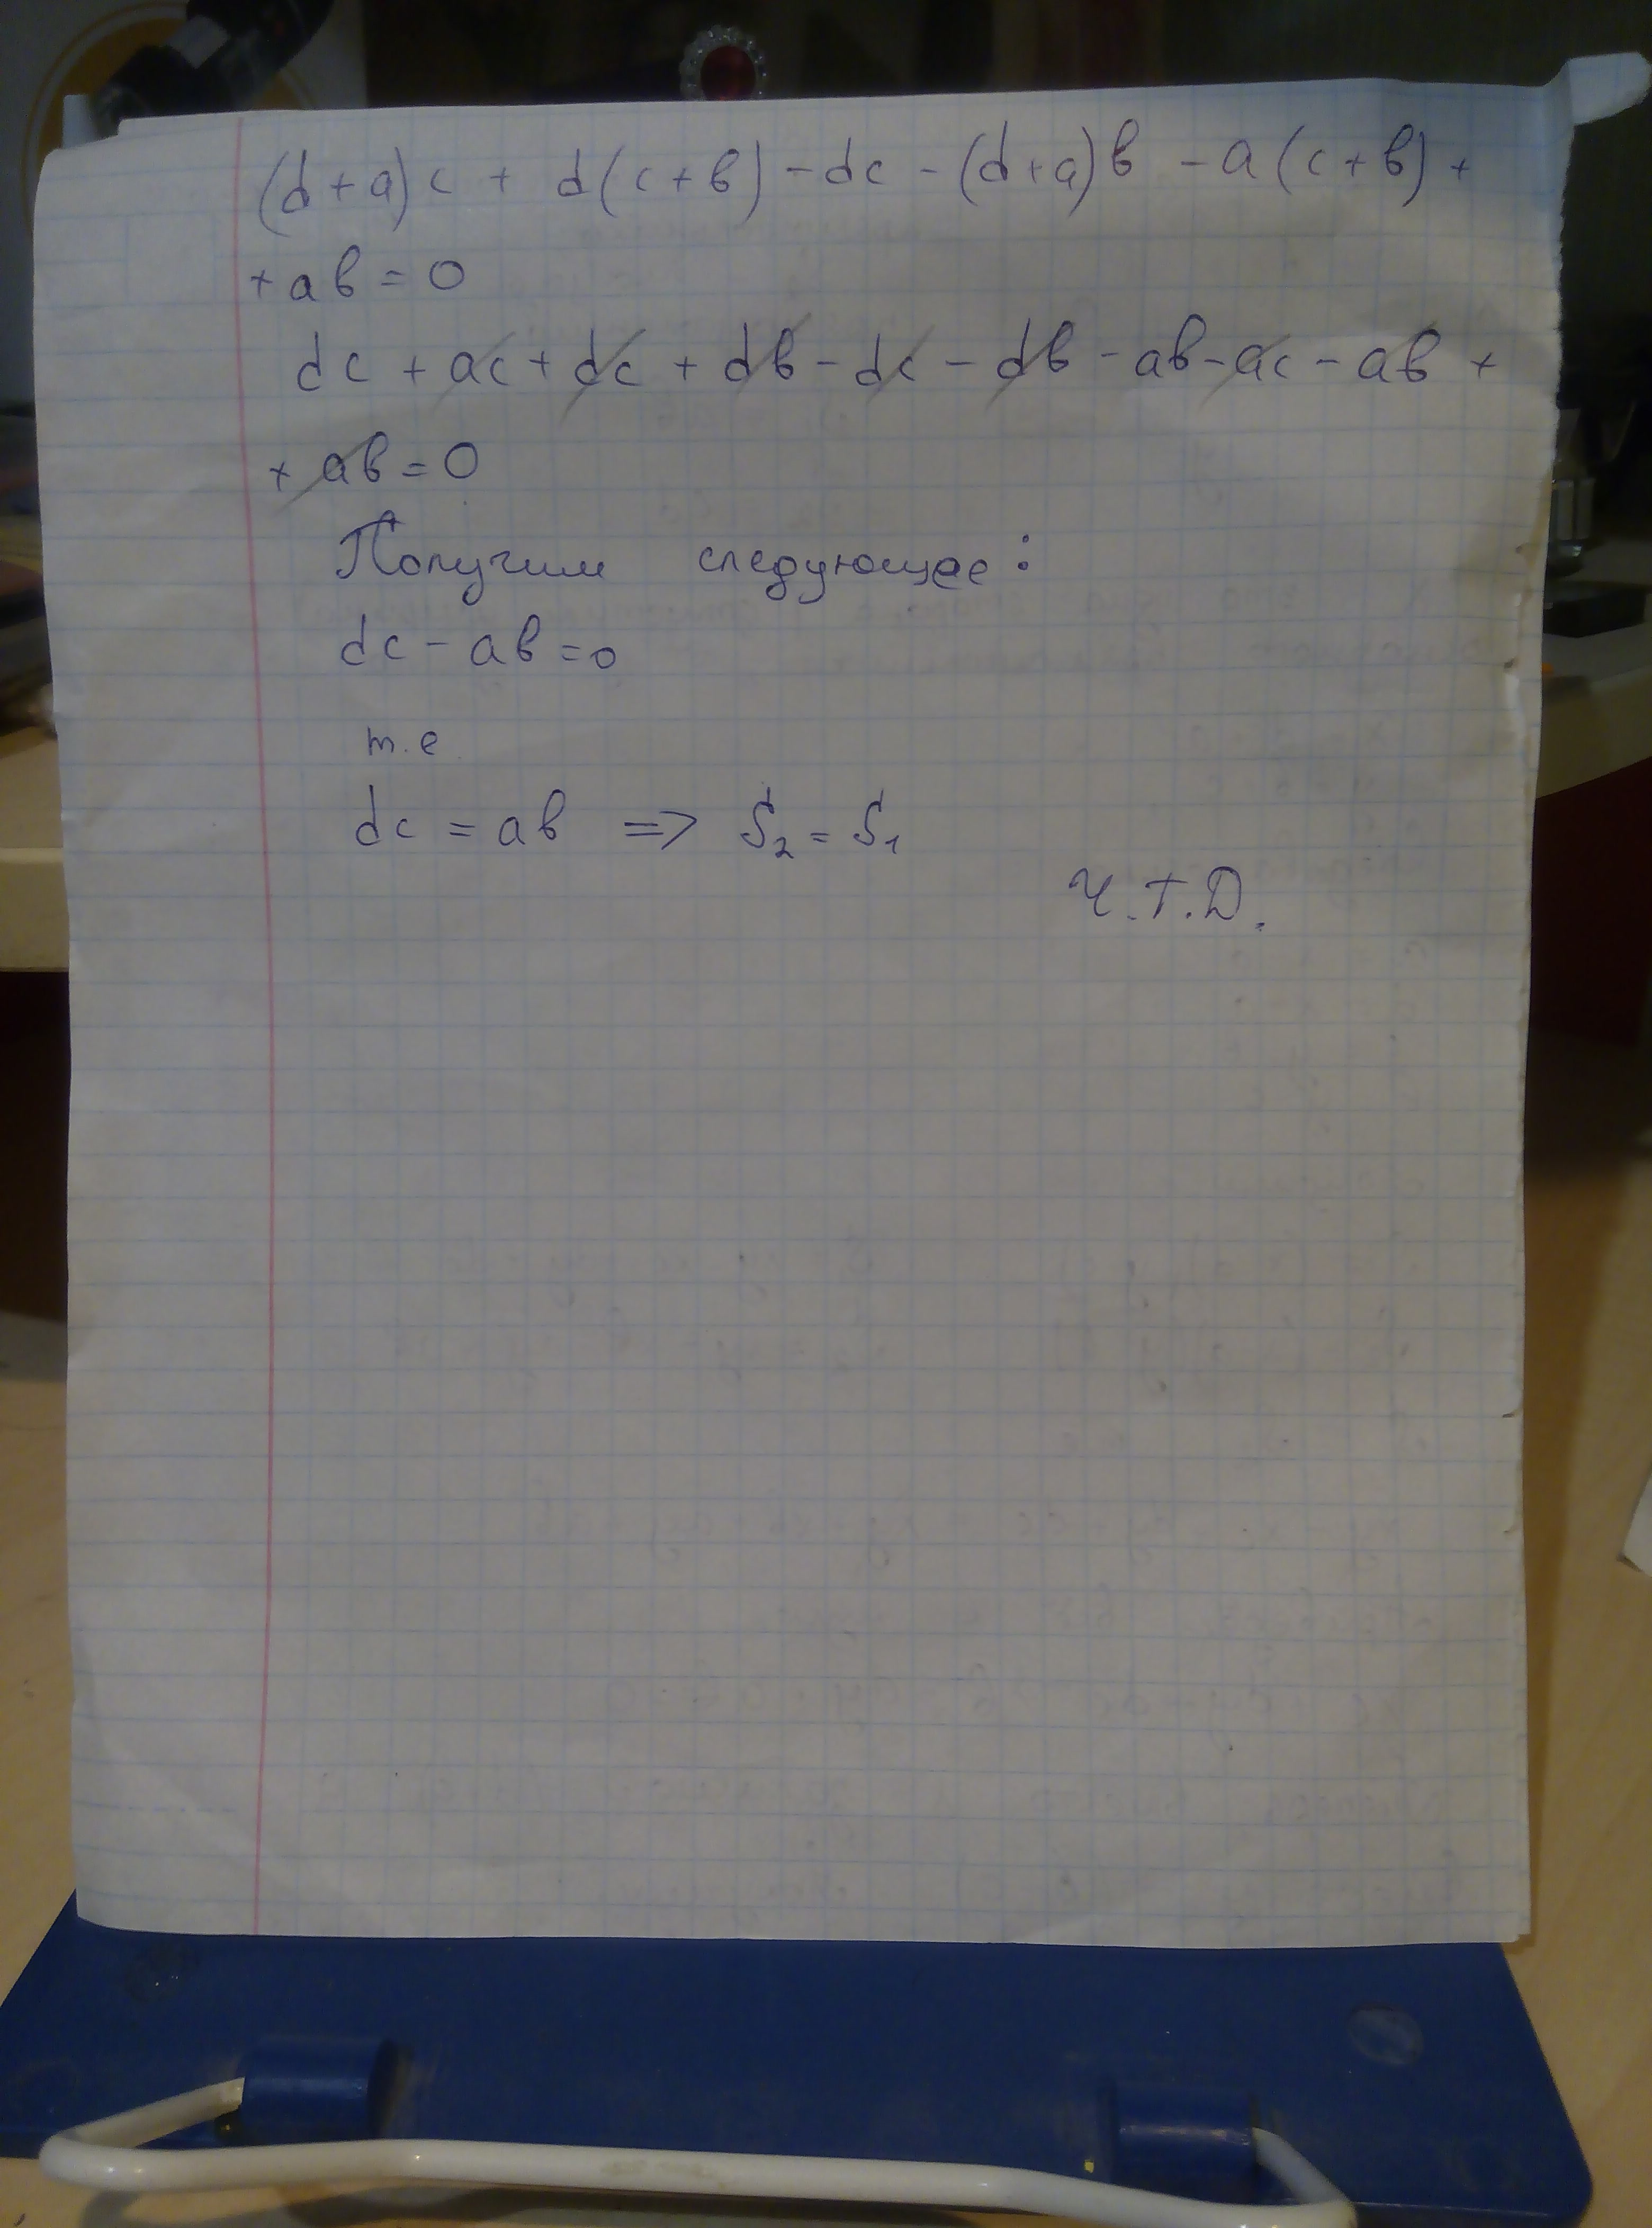 (d+a)c + d(c+в) - dc - (d+a)в - a(c+в) +
+ aв = 0
dc + ac + dc + dв - dc - dв - aв - ac - aв +
+ aв = 0
Получим следующее:
dc - aв = 0
т.е
dc = aв => S₂ = S₁
Ч.Т.Д.